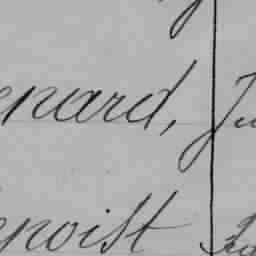 enard, Ju
enoist